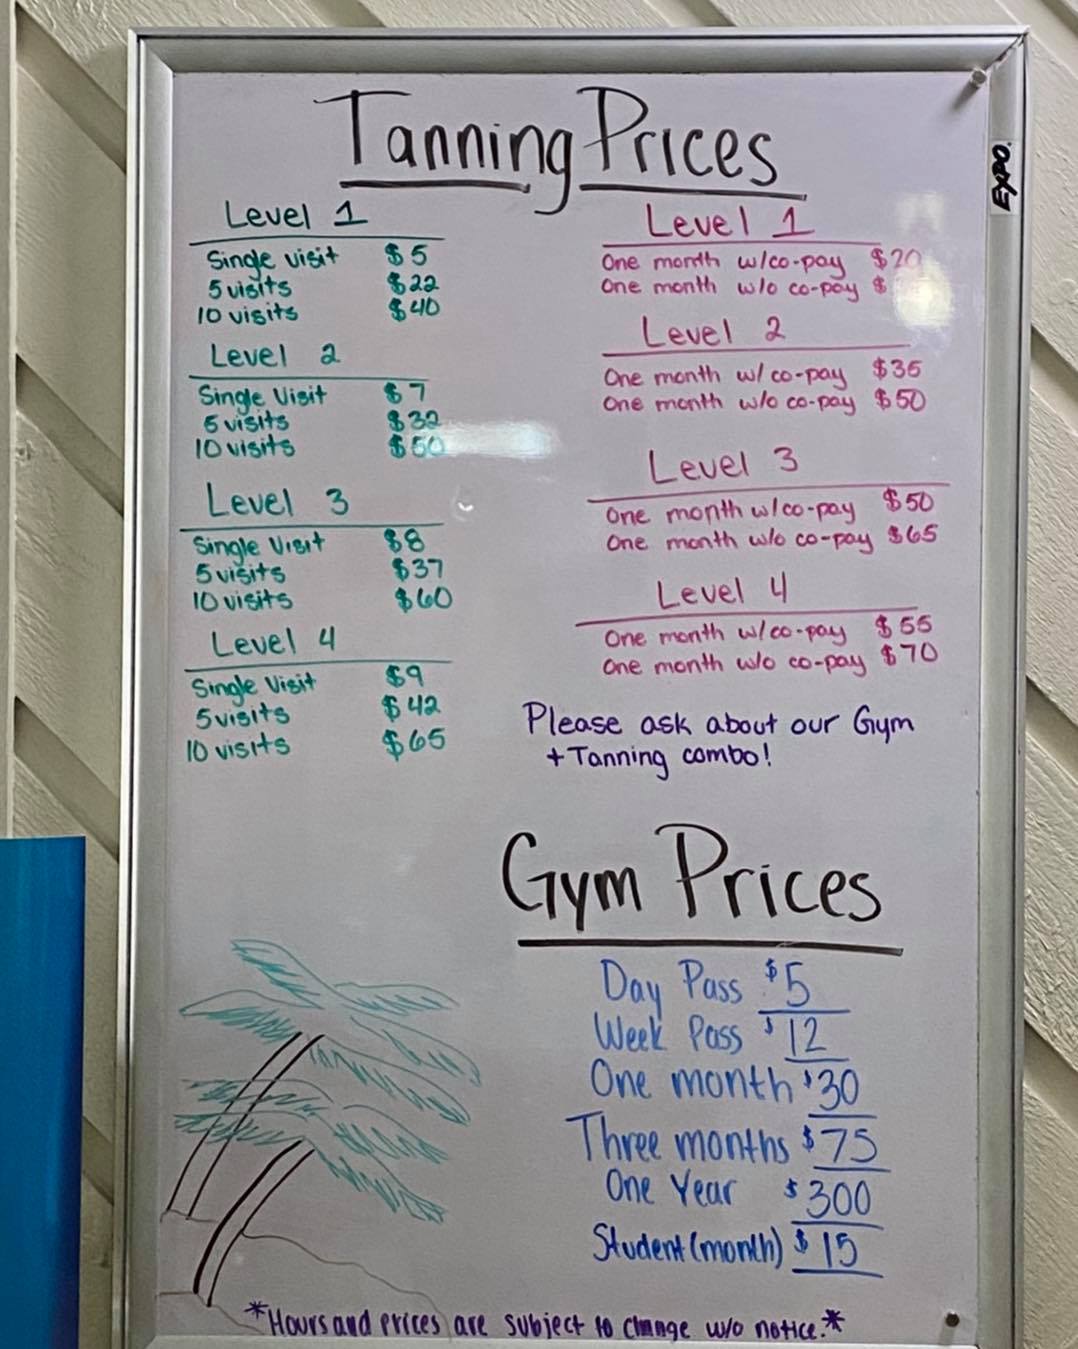 Tanning Prices
Level 1
Single visit $5
5 visits $22
10 visits $40
Level 2
Single Visit $7
5 visits $32
10 visits $50
Level 3
Single Visit $8
5 visits $37
10 visits $60
Level 4
Single Visit $9
5 visits $42
10 visits $65
Level 1
One month w/co-pay $20
One month w/o co-pay $
Level 2
One month w/ co-pay $35
One month w/o co-pay $50
Level 3
One month w/co-pay $50
One month w/o co-pay $65
Level 4
One month w/co-pay $55
One month w/o co-pay $70
Please ask about our Gym
+ Tanning combo!
Gym Prices
Day Pass $5
Week Pass $12
One month $30
Three months $75
One Year $300
Student (month) $15
*Hours and prices are subject to change w/o notice.*
EXPO